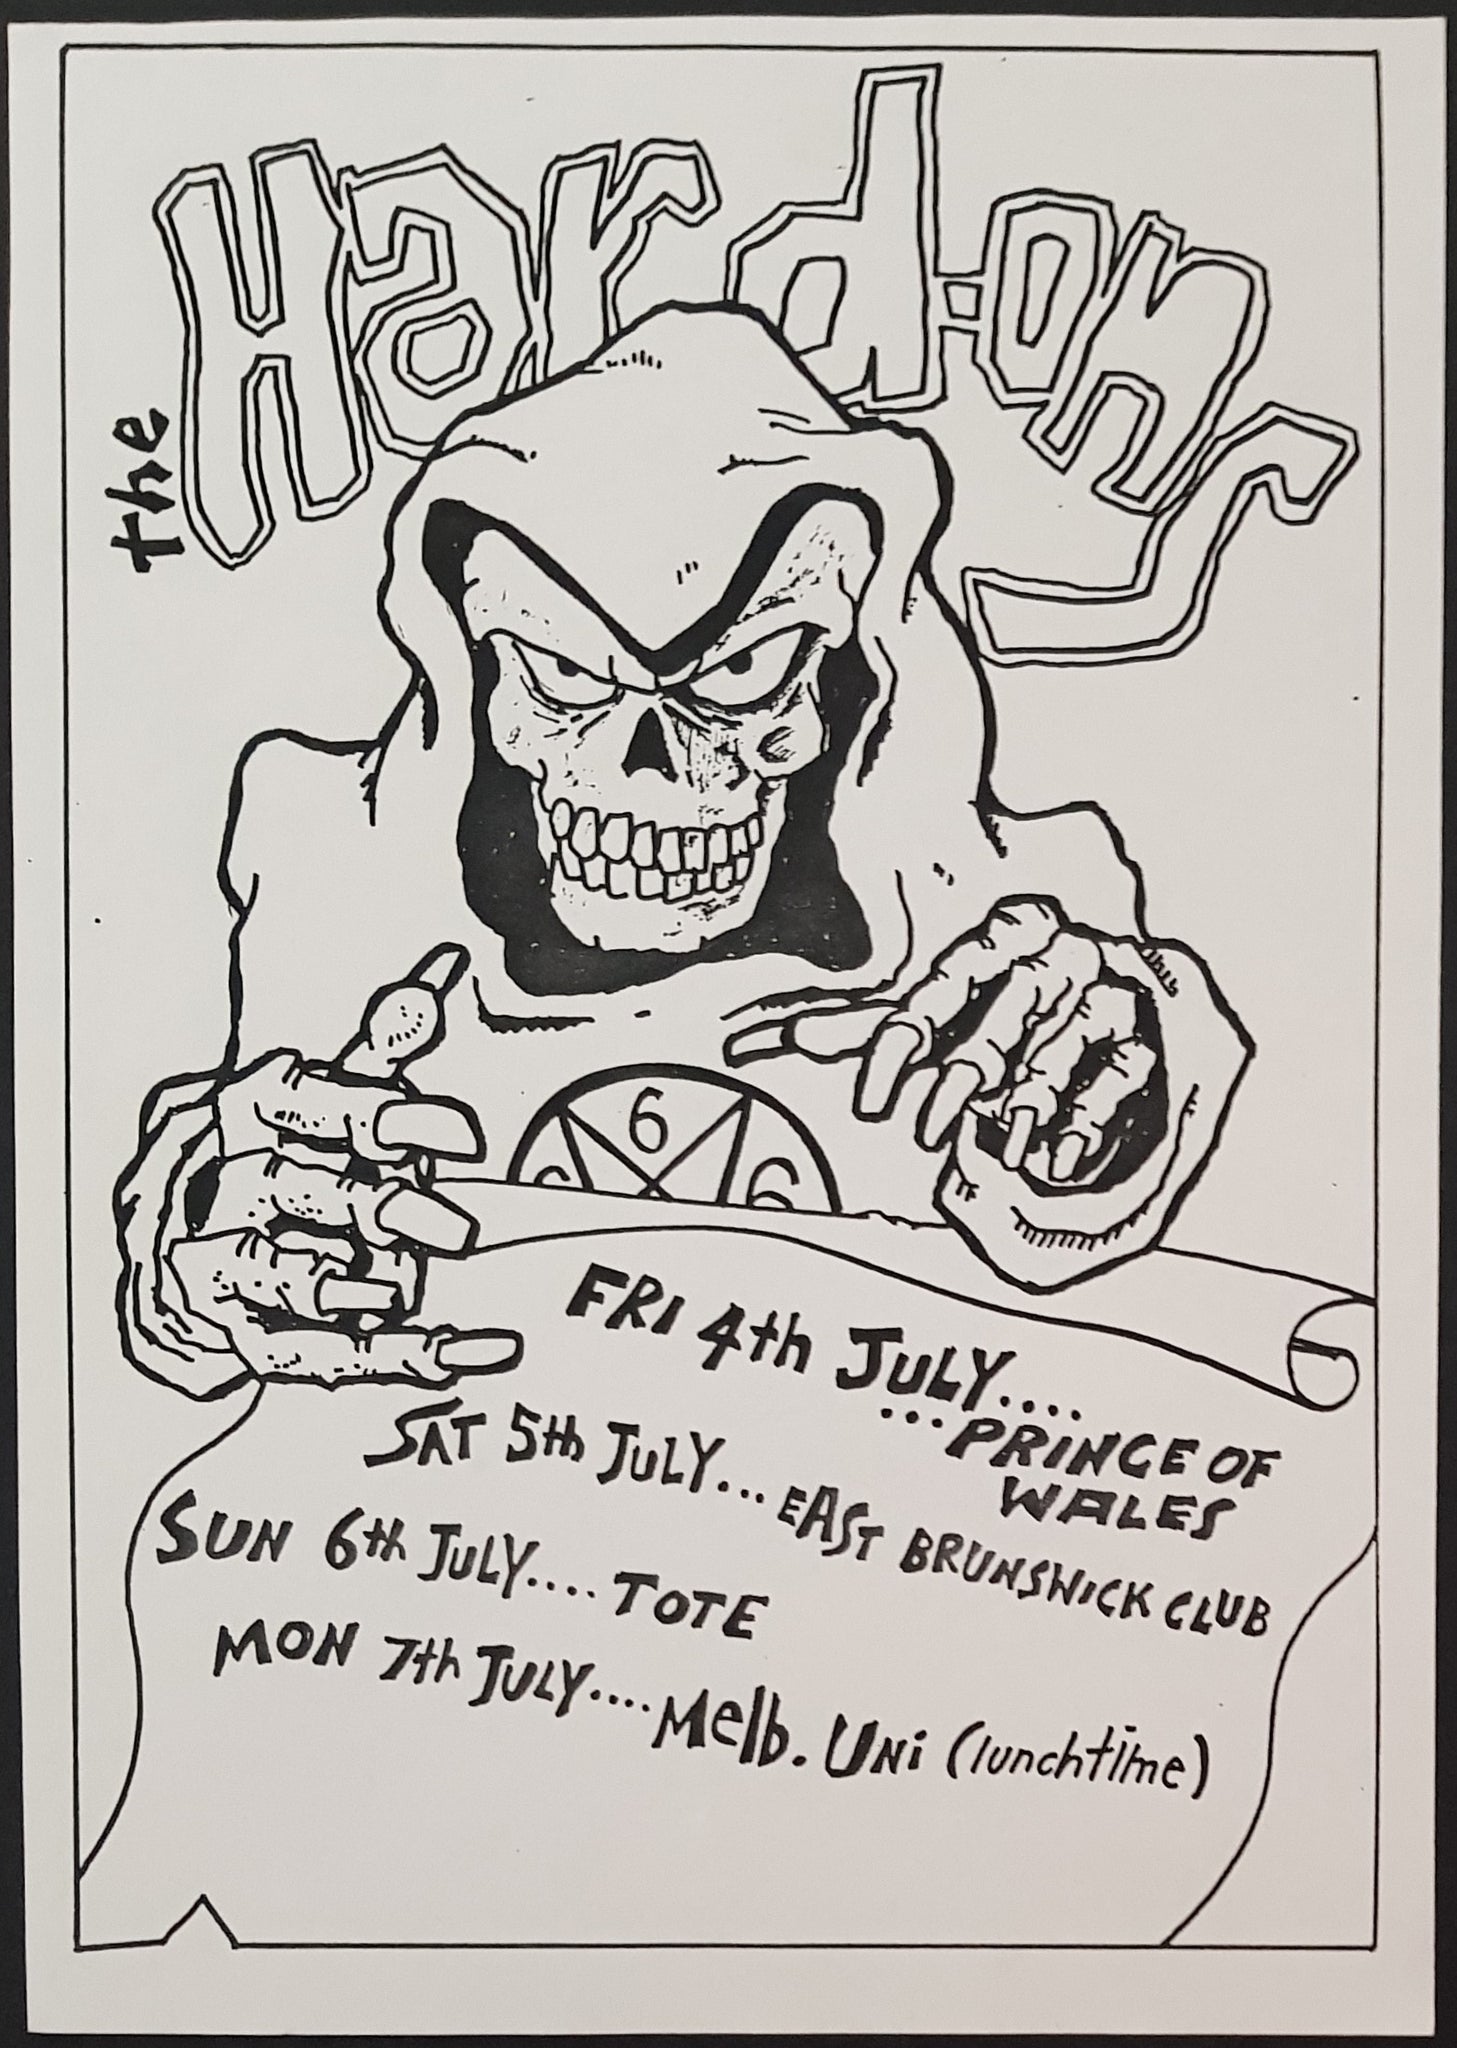 the Hard-ons
6
6 6
FRI 4th JULY....
...PRINCE OF
WALES
SAT 5th JULY... EAST BRUNSWICK CLUB
SUN 6th JULY.... TOTE
MON 7th JULY.... Melb. UNi (lunchtime)